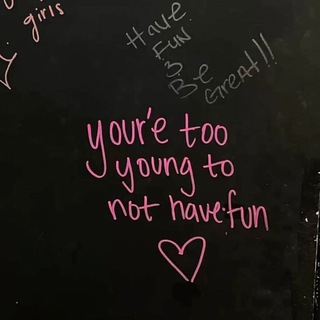 girls
Have
Fun
&
Be
Great!!
your'e too
young to
not have fun